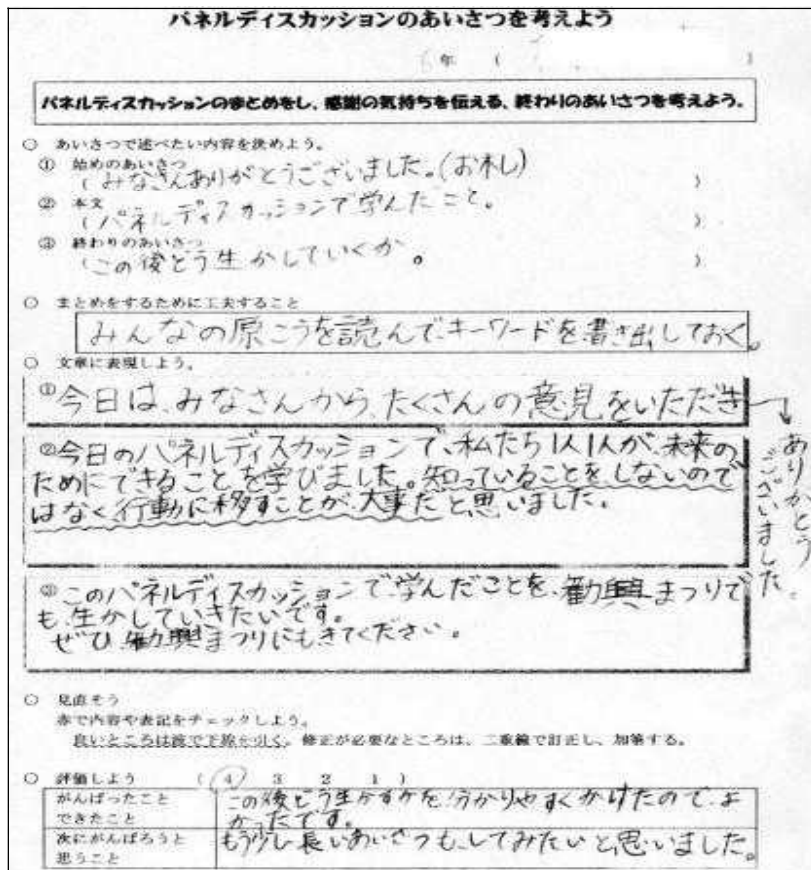 パネルディスカッションのあいさつを考えよう
6年 ( )
パネルディスカッションのまとめをし、感謝の気持ちを伝える、終わりのあいさつを考えよう。
○ あいさつで述べたい内容を決めよう。
① 始めのあいさつ
(みなさんありがとうございました。(お礼) )
② 本文
(パネルディスカッションで学んだこと。 )
③ 終わりのあいさつ
(この後どう生かしていくか。 )
○ まとめをするために工夫すること
みんなの原こうを読んで、キーワードを書き出しておく。
○ 文章に表現しよう。
①今日は、みなさんから、たくさんの意見をいただき
ありがとう
ございました。
②今日のパネルディスカッションで、私たち1人1人が、未来の
ためにできることを学びました。知っていることをしないので
はなく行動に移すことが、大事だと思いました。
③このパネルディスカッションで、学んだことを、勧興まつりで
も、生かしていきたいです。
ぜひ、勧興まつりにもきてください。
○ 見直そう
赤で内容や表記をチェックしよう。
良いところは波で下線を引く。修正が必要なところは、二重線で訂正し、加筆する。
○ 評価しよう ( 4 3 2 1 )
がんばったこと
できたこと
この後どう生かすかを、分かりやすくかけたので、よ
かったです。
次にがんばろうと
思うこと
もう少し長いあいさつも、してみたいと思いました。